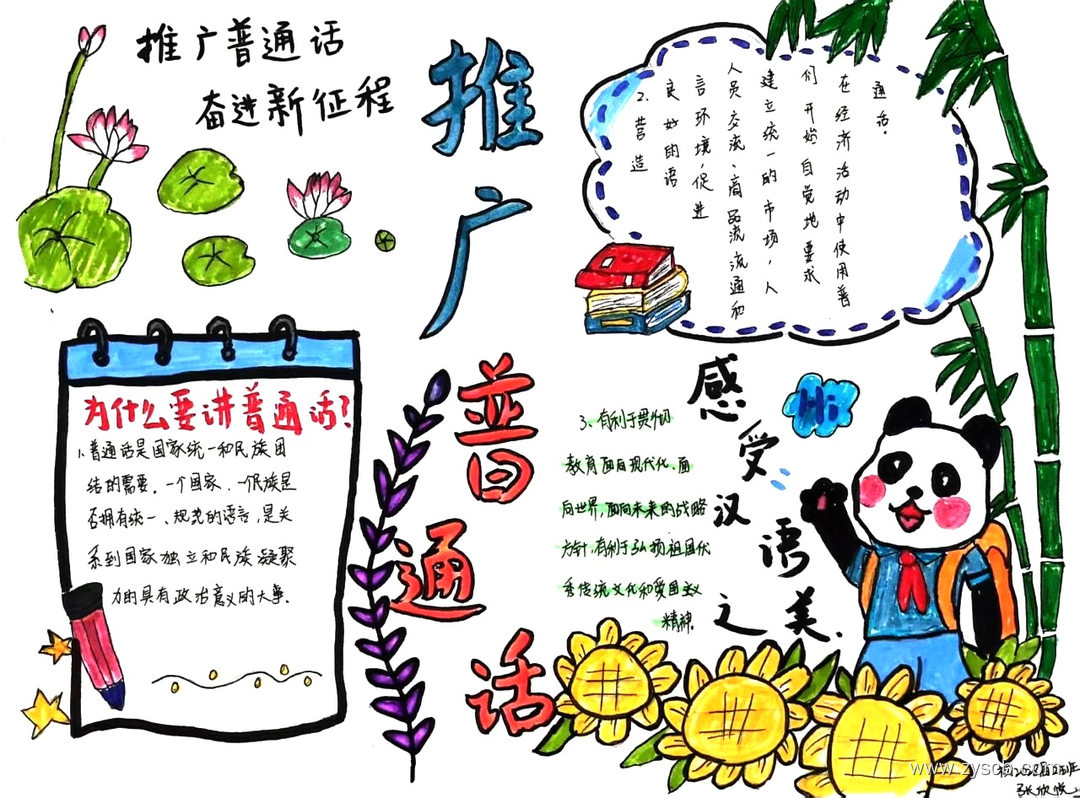 推广普通话
奋进新征程
推广普通话
2、营造
良好的语
言环境，促进
人员交流、商品流流通和
建立统一的市场，人
们开始自觉地要求
在经济活动中使用普
通话。
为什么要讲普通话？
1、普通话是国家统一和民族团
结的需要。一个国家、一个民族是
否拥有统一、规范的语言，是关
系到国家独立和民族凝聚
力的具有政治意义的大事。
3、有利于贯彻
教育面向现代化、面
向世界，面向未来的战略
方针，有利于弘扬祖国优
秀传统文化和爱国主义
精神。
感受汉语之美.
Hi
张欣悦